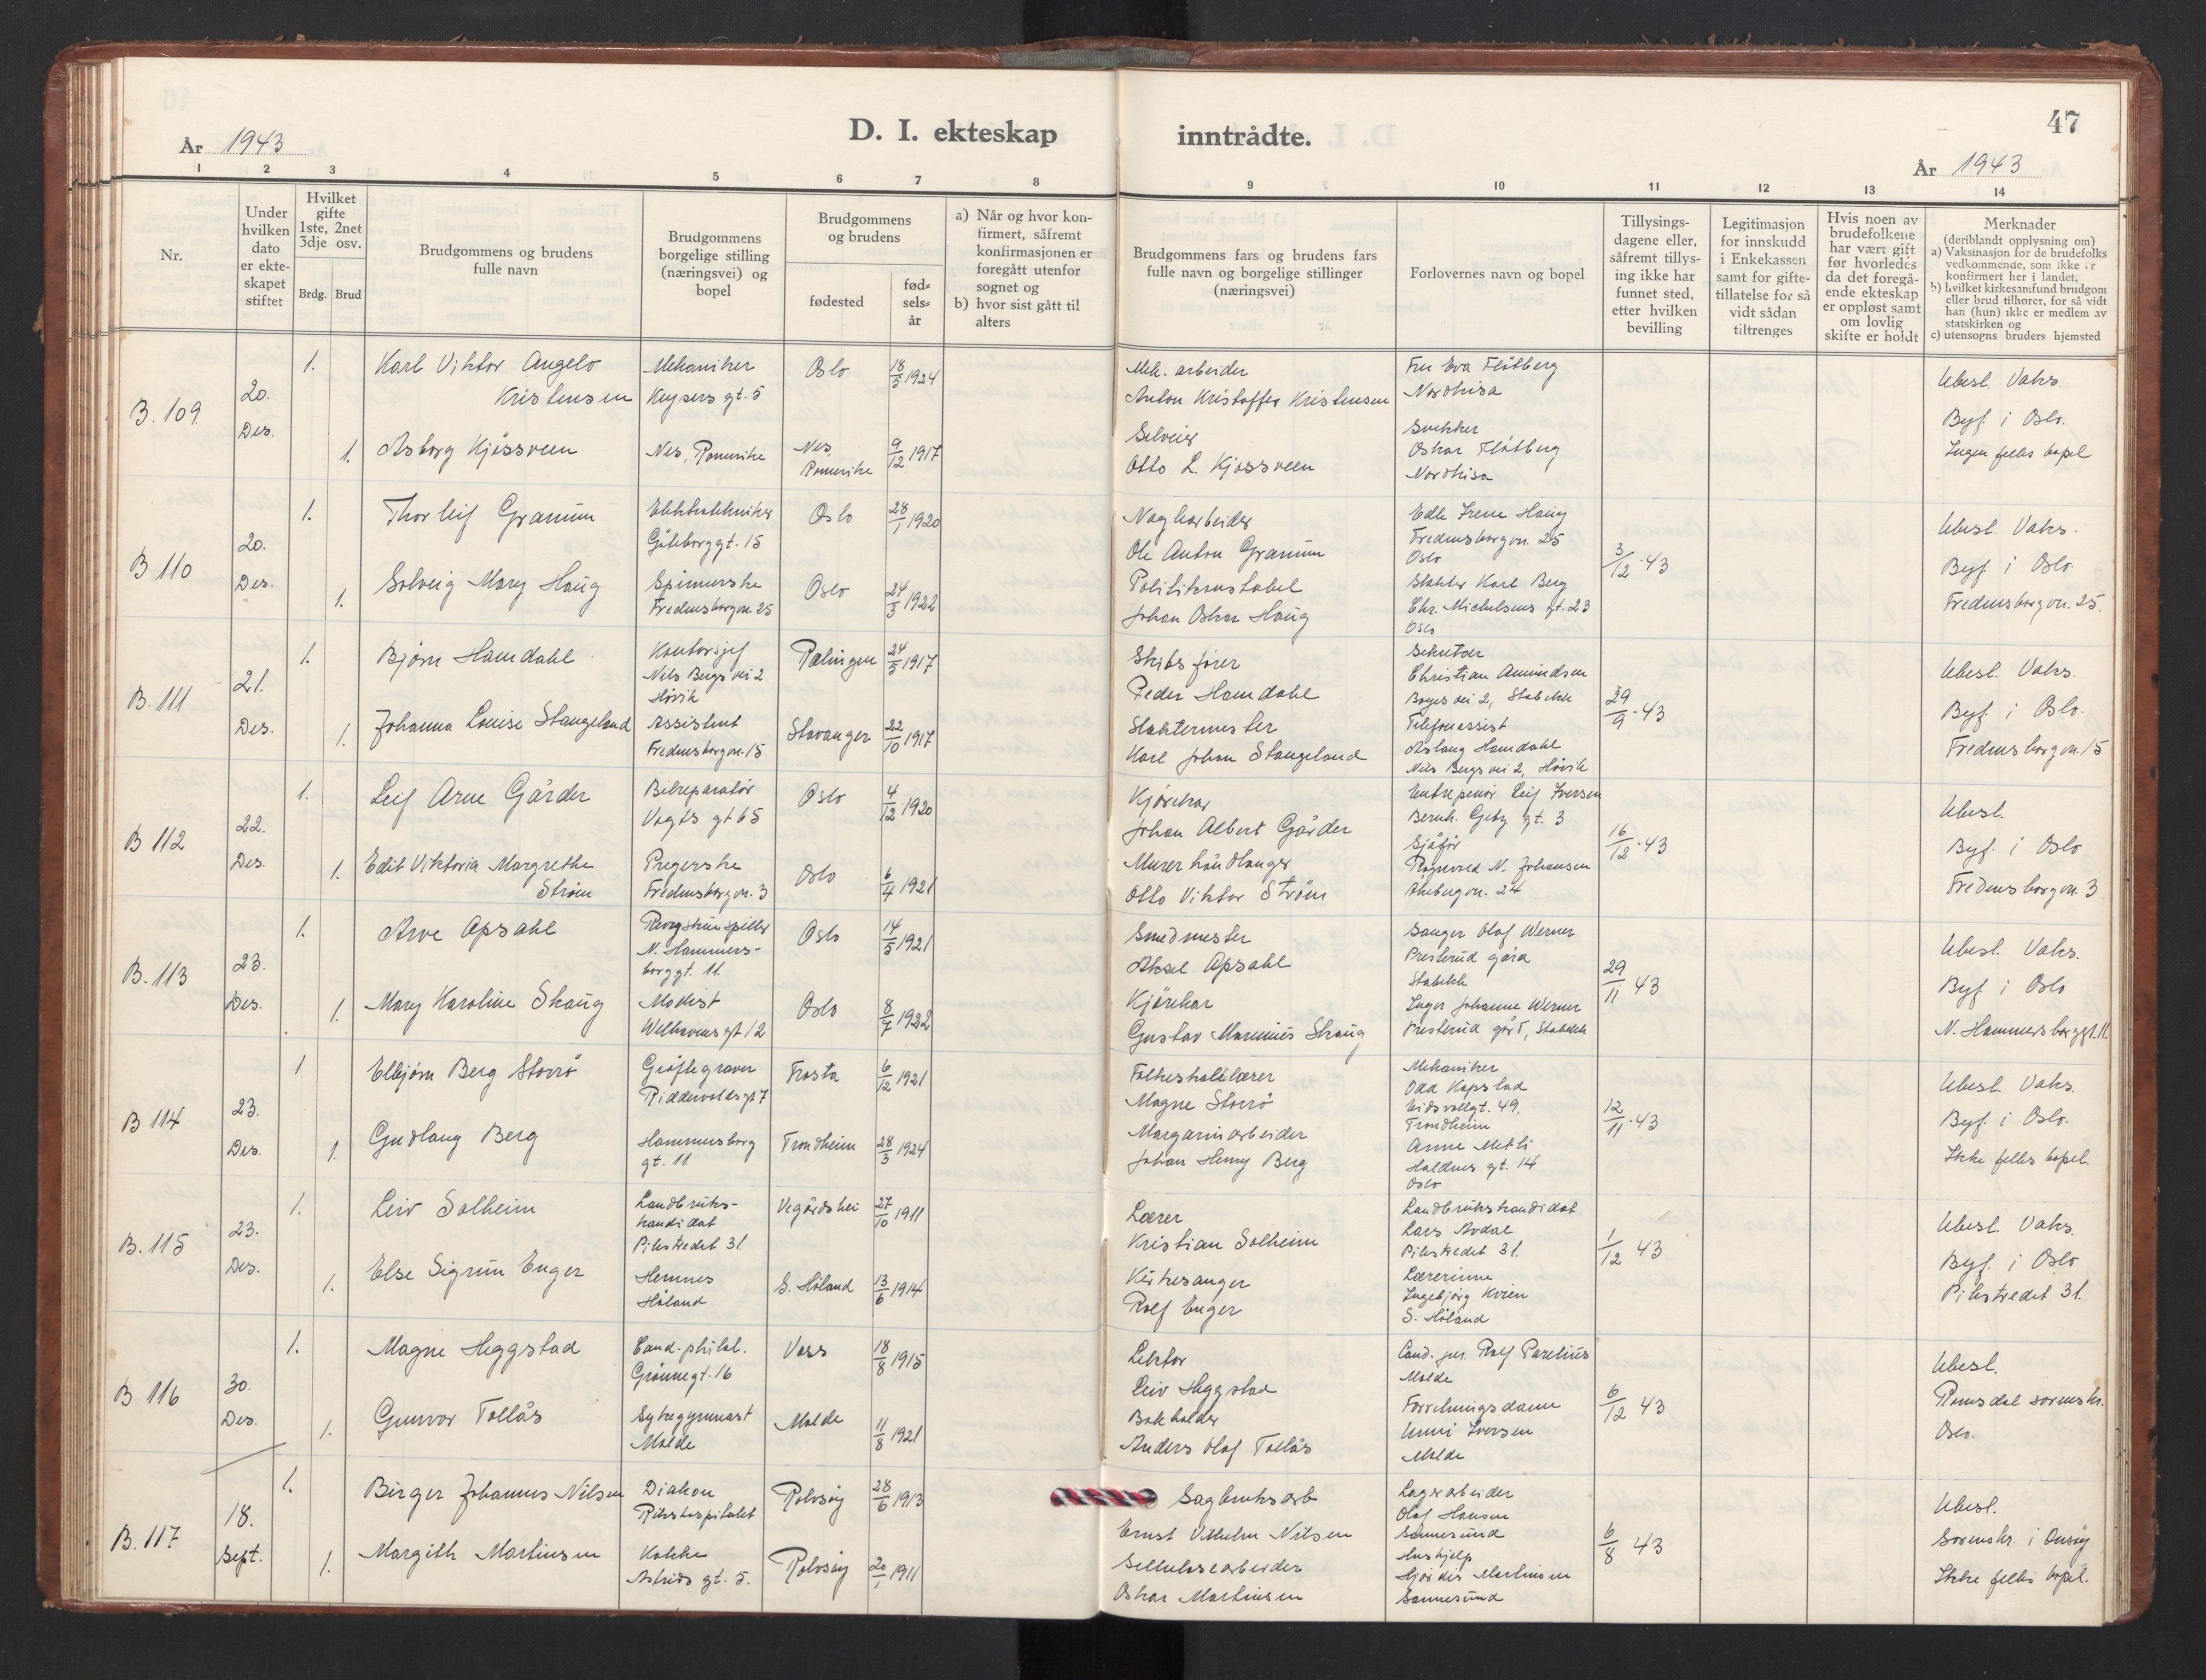 D. I. ekteskap inntrådte.
47
År 1943
År 1943
1 2 3 4 5 6 7 8 9 10 11 12 13 14
Nr.
Under hvilken dato er ekte-skapet stiftet
Hvilket gifte 1ste, 2net 3dje osv.
Brdg. Brud
Brudgommens og brudens fulle navn
Brudgommens borgelige stilling (næringsvei) og bopel
Brudgommens og brudens
fødested
fød-sels-år
a) Når og hvor kon-firmert, såfremt konfirmasjonen er foregått utenfor sognet og
b) hvor sist gått til alters
Brudgommens fars og brudens fars fulle navn og borgelige stillinger (næringsvei)
Forlovernes navn og bopel
Tillysings-dagene eller, såfremt tillys-ing ikke har funnet sted, etter hvilken bevilling
Legitimasjon for innskudd i Enkekassen samt for gifte-tillatelse for så vidt sådan tiltrenges
Hvis noen av brudefolkene har vært gift før hvorledes da det foregå-ende ekteskap er oppløst samt om lovlig skifte er holdt
Merknader
(deriblandt opplysning om)
a) Vaksinasjon for de brudefolks vedkommende, som ikke er konfirmert her i landet,
b) hvilket kirkesamfund brudgom eller brud tilhører, for så vidt han (hun) ikke er medlem av statskirken og
c) utensogns bruders hjemsted
B. 109
20. Des.
1. Karl Viktor Angelo Kristensen
Mekaniker
Keysers gt. 5
Oslo
18/5 1924
Mek. arbeider
Anton Kristoffer Kristensen
Fru Eva Fløtberg
Nordkisa
1. Asborg Kjøssveen
Nes, Romerike
Nes, Romerike
9/12 1917
Selveier
Otto L. Kjøssveen
Snekker
Oskar Fløtberg
Nordkisa
Ubesl. Vaks.
Byf. i Oslo.
Ingen felles bopel
B 110
20. Des.
1. Thorleif Granum
Elektrotekniker
Gøteborggt. 15
Oslo
28/1 1920
Ole Anton Granum
Edle Irene Haug
Fredensborgvn. 25
Oslo
1. Solveig Mary Haug
Spinnerske
Fredensborgvn. 25
Oslo
24/3 1922
Politikonstabel
Johan Oskar Haug
Slakter Karl Berg
Chr. Michelsens gt. 23
Oslo
3/12 43
Ubesl. Vaks.
Byf i Oslo.
Fredensborgvn. 25.
B. 111
21. Des.
1. Bjørn Hamdahl
Kontorsjef
Nils Bergs vei 2
Høvik
Rælingen
24/5 1917
Skibsfører
Peder Hamdahl
Sekretær
Christian Amundsen
Boges vei 2, Stabekk
1. Johanna Louise Stangeland
Assistent
Fredensborgvn. 15
Stavanger
22/10 1917
Slaktermester
Karl Johan Stangeland
Telefonassist
Aslaug Hamdahl
Nils Bergs vei 2, Høvik
29/9 43
Ubesl. Vaks.
Byf. i Oslo.
Fredensborgvn. 15
B 112
22. Des.
1. Leif Arne Gårder
Bilreparatør
Vogts gt 65
Oslo
4/12 1920
Kjørekar
Johan Albert Gårder
Entrepenør Leif Iversen
Bernh. Getz gt. 3
1. Edit Viktoria Margrethe Strøm
Pregerske
Fredensborgvn. 3
Oslo
6/4 1921
Murerhåndlanger
Otto Viktor Strøm
Sjåfør
Ragnvald N. Johansen
Åkebergvn. 24
16/12 43
Ubesl.
Byf. i Oslo
Fredensborgvn. 3
B. 113
23. Des.
1. Arve Opsahl
N. Hammersborggt. 11.
Oslo
14/5 1921
Smedmester
Aksel Opsahl
Sanger Olaf Werner
Presterud gård
Stabekk
1. Mary Karoline Skaug
Modist
Welhavens gt 12
Oslo
8/7 1922
Kjørekar
Gustav Marinius Skaug
Inger Johanne Werner
Presterud gård, Stabekk
29/11 43
Ubesl. Vaks.
Byf i Oslo
N. Hammersborggt. 11.
B 114
23. Des.
1 Elbjørn Berg Storrø
Grøftegraver
Riddervoldsgt 7
Frosta
6/12 1921
Folkeskolelærer
Magne Storrø
Mekaniker
Odd Kapstad
Eidsvollgt. 49.
Trondheim
1. Gudlaug Berg
Hammersborg gt. 11
Trondheim
28/3 1924
Margarinarbeider
Johan Henry Berg
Anne Metli
Haldens gt. 14
Oslo
12/11 43
Ubesl. Vaks.
Byf. i Oslo.
Ikke felles bopel.
B. 115
23. Des.
1. Leiv Solheim
Landbruks-kandidat
Pilestredet 31.
Vegårdshei
27/10 1911
Lærer
Kristian Solheim
Landbrukskandidat
Lars Avdal
Pilestredet 31.
1. Else Sigrun Enger
Hemnes
Høland
S. Høland
13/6 1914
Kirkesanger
Rolf Enger
Lærerinne
Ingebjørg Kvien
S. Høland
1/12 43
Ubesl. Vaks.
Byf. i Oslo
Pilestredet 31.
B 116
30. Des.
1. Magne Heggstad
Cand. philol.
Grønnegt. 16
Voss
18/8 1915
Lektor
Leiv Heggstad
Cand. jur. Rolf Parelius
Molde
1. Gunvor Tollås
Sykegymnast
Molde
Molde
11/8 1921
Bokholder
Anders Olaf Tollås
Forretningsdame
Unni Iversen
Molde
6/12 43
Ubesl.
Romsdal sorenskr.
Oslo.
B. 117
18. Sept.
1. Birger Johannes Nilsen
Diakon
Rikshospitalet
Rolvsøy
28/6 1913
Sagbruksarb
Ernst Vilhelm Nilsen
Lagerarbeider
Olaf Hansen
Sannesund
1. Margith Martinsen
Kokke
Astrids gt. 5.
Rolvsøy
20/1 1911
Sellulosearbeider
Oskar Martinsen
Hushjelp
Hjørdis Martinsen
Sannesund
6/8 43
Ubesl.
Sorenskr. i Onsøy
Ikke felles bopel.